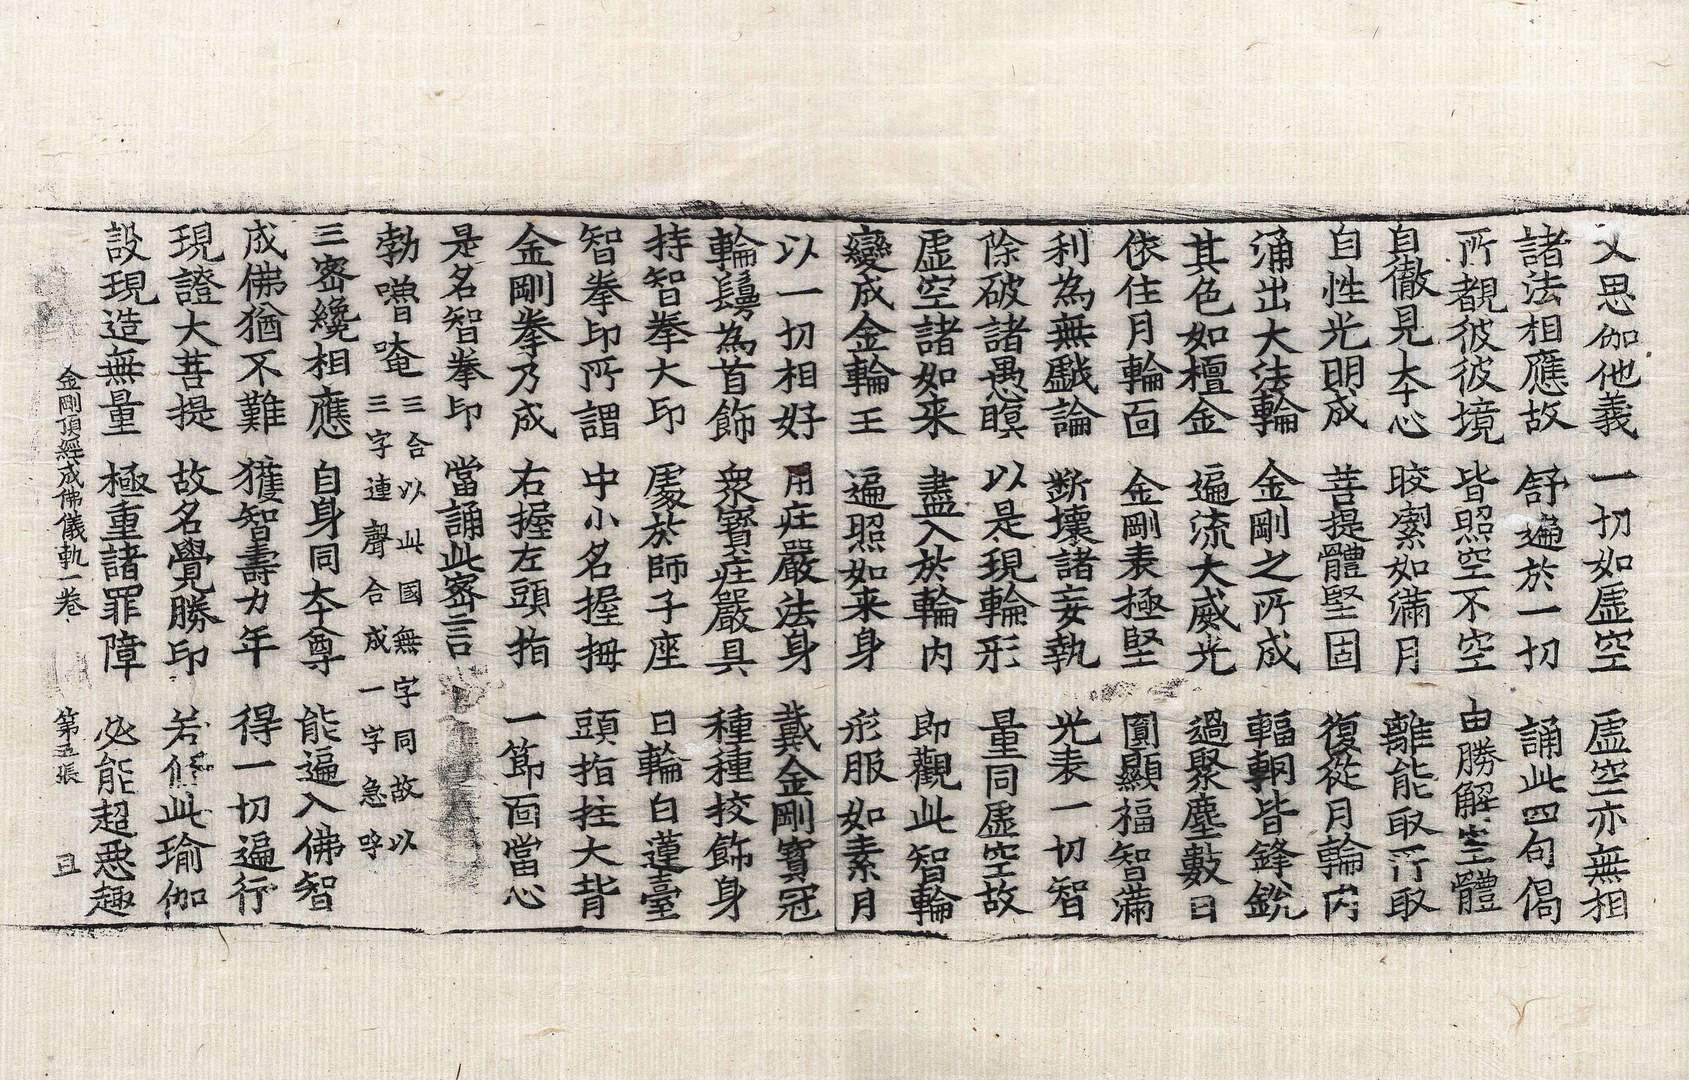 又思伽他義 一切如虛空 虛空亦無相
諸法相應故 舒遍於一切 誦此四句偈
所覩彼彼境 皆照空不空 由勝解空體
自徹見本心 皎潔如滿月 離能取所取
自性光明成 菩提體堅固 復從月輪內
涌出大法輪 金剛之所成 輻輞皆鋒銳
其色如檀金 遍流大威光 過聚塵數日
依住月輪面 金剛表極堅 圓顯福智滿
利為無戲論 斷壞諸妄執 光表一切智
除破諸愚瞑 以是現輪形 量同虛空故
虛空諸如来 盡入於輪內 即觀此智輪
變成金輪王 遍照如来身 形服如素月
以一切相好 用庄嚴法身 戴金剛寶冠
輪鬘為首飾 衆寶庄嚴具 種種挍飾身
持智拳大印 處於師子座 日輪白蓮臺
智拳印所謂 中小名握拇 頭指拄大背
金剛拳乃成 右握左頭指 一節面當心
是名智拳印 當誦此密言
勃嚕唵三合以此國無字同故以三字連聲合成一字急呼
三密纔相應 自身同本尊 能遍入佛智
成佛猶不難 獲智壽力年 得一切遍行
現證大菩提 故名覺勝印 若修此瑜伽
設現造無量 極重諸罪障 必能超惡趣
金剛頂經成佛儀軌一卷 第五張 且